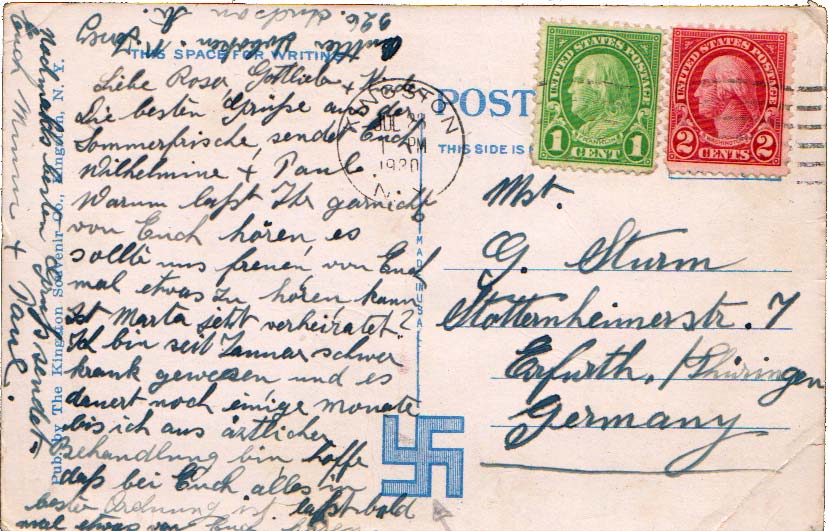 926. Hudson St.
Hoboken N. Jersey
THIS SPACE FOR WRITING
Liebe Rosa, Gottlieb + Kinder
Die besten Grüße aus der
Sommerfrische, sendet Euch
Wilhelmine + Paul.
Warum laßt Ihr garnicht
von Euch hören, es
sollte uns freuen, von Euch
mal etwas zu hören, kann
Ist Marta jetzt verheiratet?
Ich bin seit Januar schwer
krank gewesen und es
dauert noch einige Monate
bis ich aus ärtlicher
Behandlung bin, hoffe
daß bei Euch alles in
bester Ordnung ist. laßt bald
mal etwas von Euch hören
Nochmals besten Gruß sendet
Euch Minna + Paul.
Pub. by The Kingston Souvenir Co., Kingston, N. Y.
MADE IN U.S.A.
POST
THIS SIDE IS
KINGSTON
JUL 28
PM
N. Y.
UNITED STATES POSTAGE
FRANKLIN
1 CENT 1
UNITED STATES POSTAGE
WASHINGTON
2 CENTS 2
Mst.
G. Sturm
Stotternheimerstr. 7
Erfurth, /Thüringen
Germany